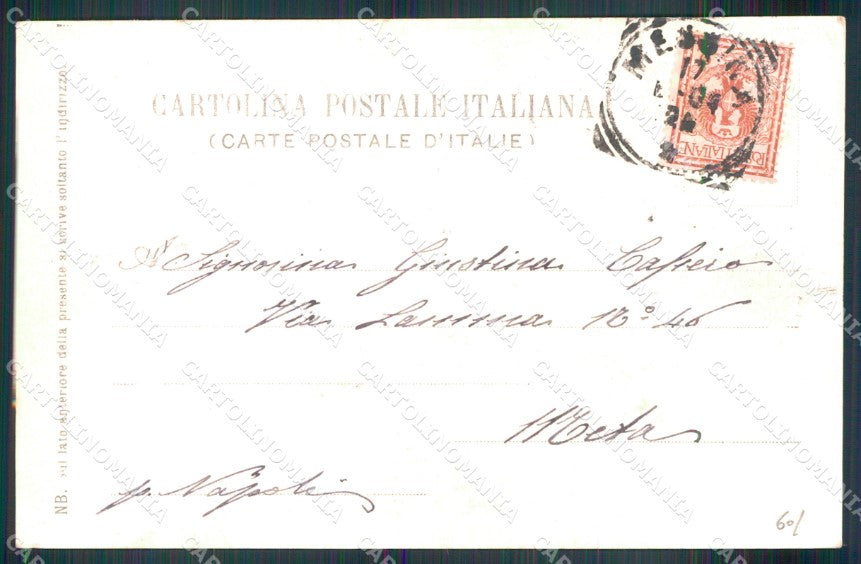 CARTOLINA POSTALE ITALIANA
(CARTE POSTALE D'ITALIE)
NB. sul lato anteriore della presente si scrive soltanto l'indirizzo.
17
04
POSTE ITALIANE
A Signorina Giustina Cafiero
Via Lamma No. 46
Meta
p. Napoli
60/
CARTOLINOMANIA